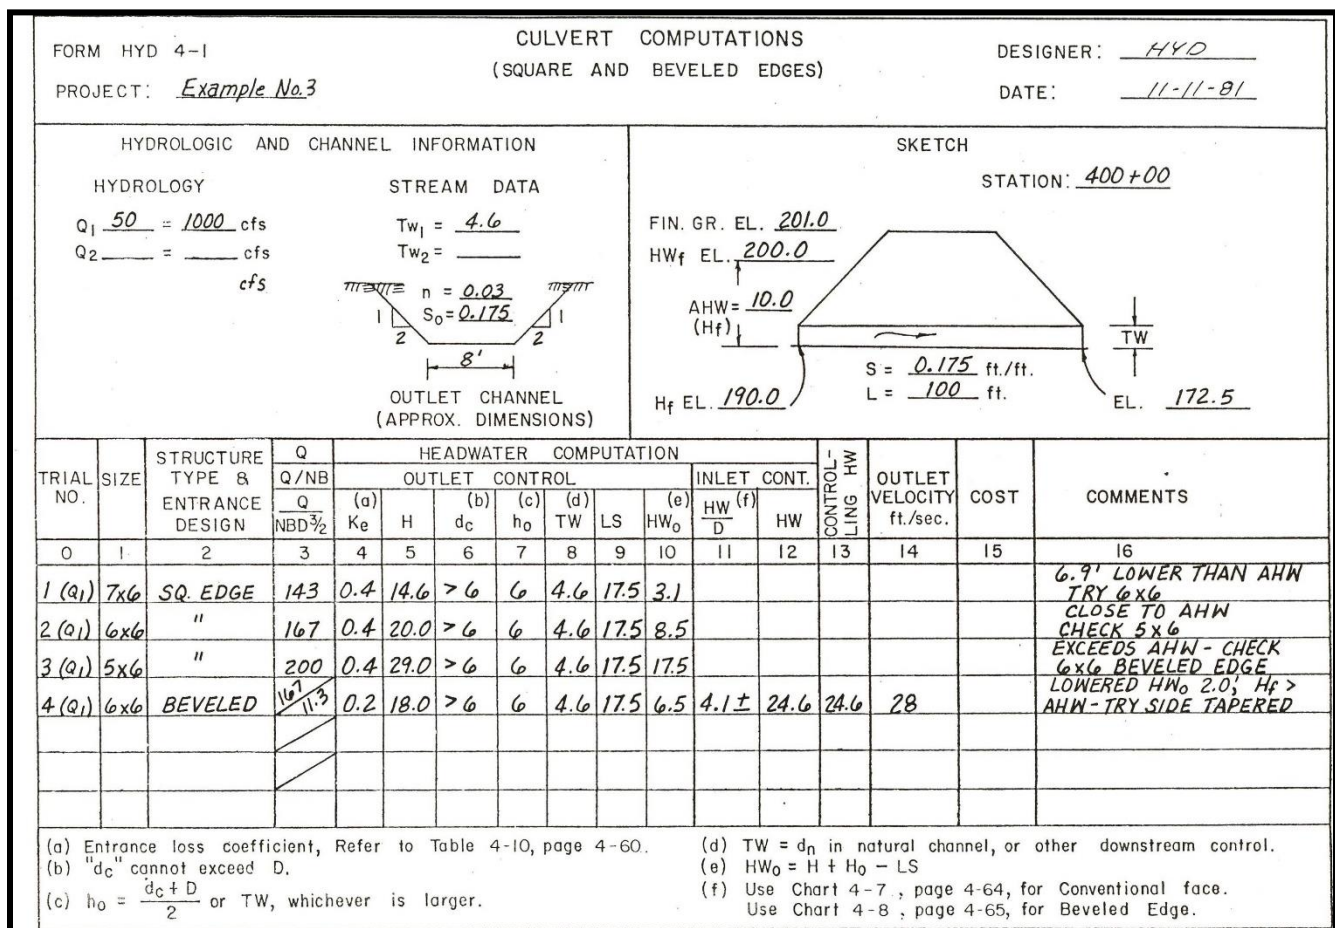 FORM HYD 4-1
PROJECT: Example No.3
CULVERT COMPUTATIONS
(SQUARE AND BEVELED EDGES)
DESIGNER: HYD
DATE: 11-11-81
HYDROLOGIC AND CHANNEL INFORMATION
HYDROLOGY
Q1 50 = 1000 cfs
Q2 ____ = ____ cfs
cfs
STREAM DATA
Tw1 = 4.6
Tw2 = ____
n = 0.03
So = 0.175
1 2
2 1
8'
OUTLET CHANNEL
(APPROX. DIMENSIONS)
SKETCH
STATION: 400+00
FIN. GR. EL. 201.0
HWf EL. 200.0
AHW = 10.0
(Hf)
TW
S = 0.175 ft./ft.
L = 100 ft.
Hf EL. 190.0
EL. 172.5
TRIAL NO.
SIZE
STRUCTURE TYPE & ENTRANCE DESIGN
Q
Q/NB
Q
NBD3/2
HEADWATER COMPUTATION
OUTLET CONTROL
INLET CONT.
(a) Ke
H
(b) dc
(c) ho
(d) TW
LS
(e) HWo
HW/D (f)
HW
CONTROL-LING HW
OUTLET VELOCITY ft./sec.
COST
COMMENTS
0 1 2 3 4 5 6 7 8 9 10 11 12 13 14 15 16
1 (Q1) 7x6 SQ. EDGE 143 0.4 14.6 >6 6 4.6 17.5 3.1 6.9' LOWER THAN AHW TRY 6x6
2 (Q1) 6x6 " 167 0.4 20.0 >6 6 4.6 17.5 8.5 CLOSE TO AHW CHECK 5x6
3 (Q1) 5x6 " 200 0.4 29.0 >6 6 4.6 17.5 17.5 EXCEEDS AHW - CHECK 6x6 BEVELED EDGE
4 (Q1) 6x6 BEVELED 167/11.3 0.2 18.0 >6 6 4.6 17.5 6.5 4.1± 24.6 24.6 28 LOWERED HWo 2.0', Hf > AHW - TRY SIDE TAPERED
(a) Entrance loss coefficient, Refer to Table 4-10, page 4-60.
(b) "dc" cannot exceed D.
(c) ho = dc + D / 2 or TW, whichever is larger.
(d) TW = dn in natural channel, or other downstream control.
(e) HWo = H + Ho - LS
(f) Use Chart 4-7, page 4-64, for Conventional face.
Use Chart 4-8, page 4-65, for Beveled Edge.